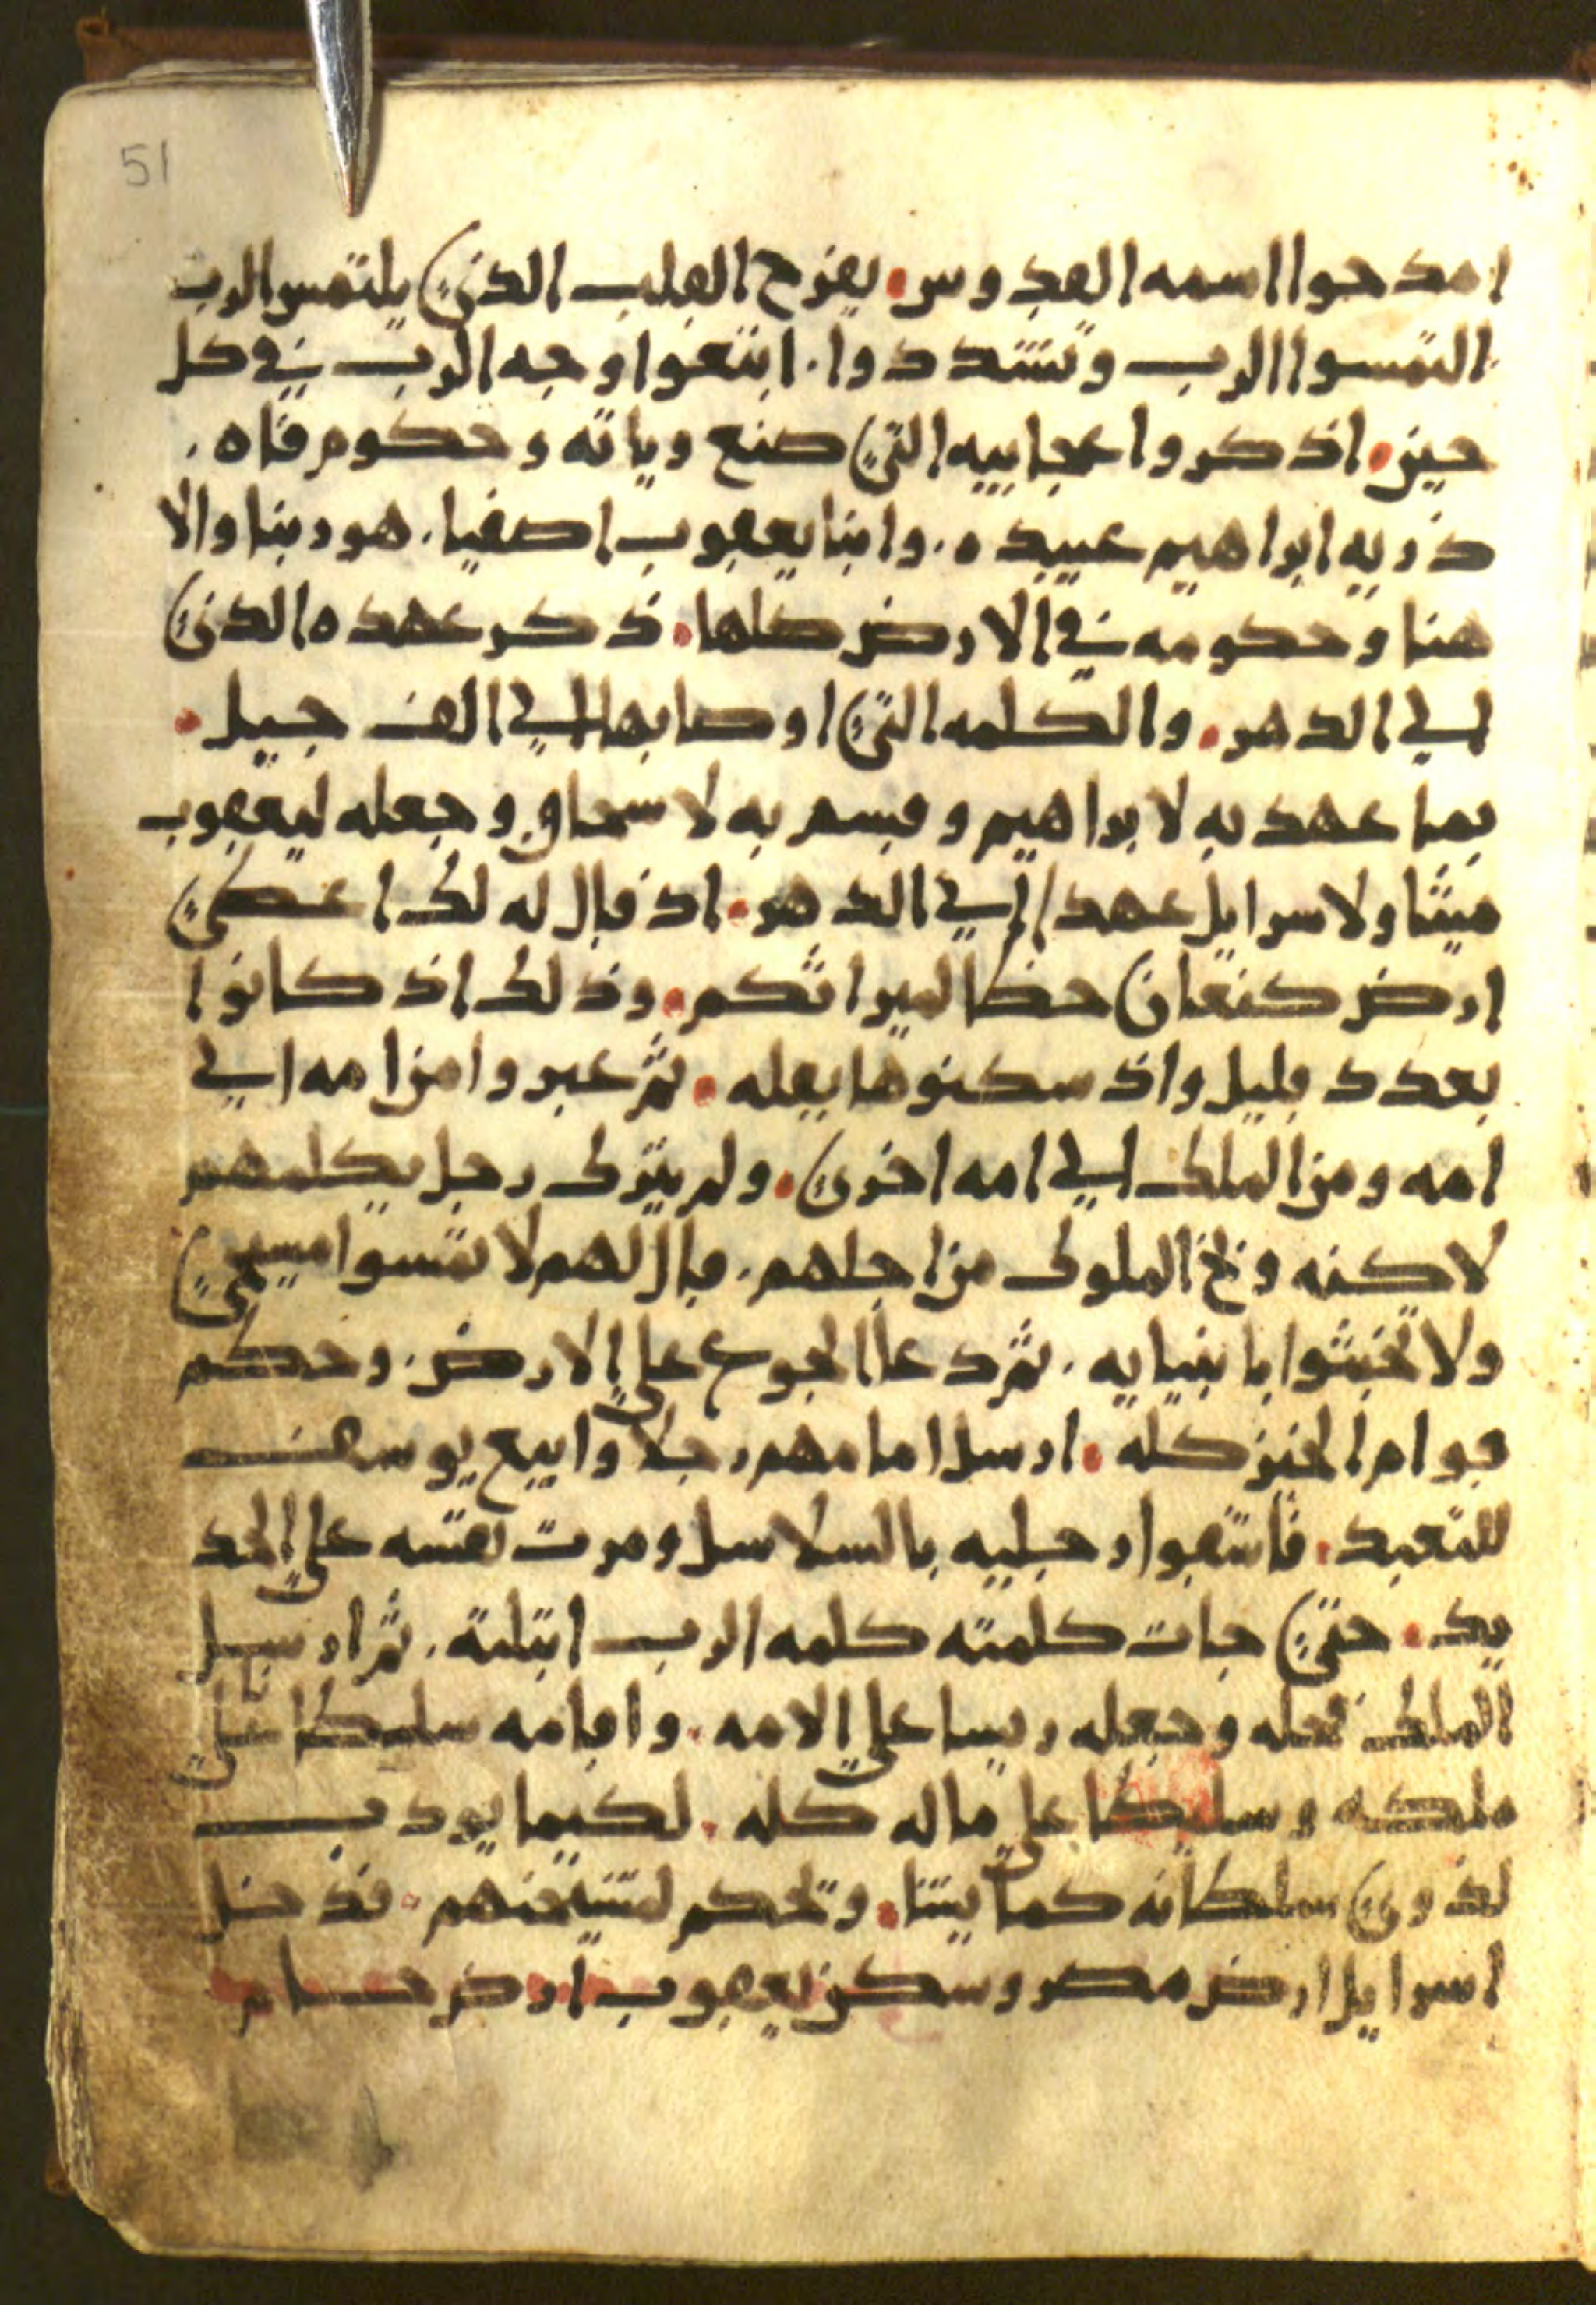 51
امدحوا اسمه القدوس. يفرح القلب الذي يلتمس الرب
التمسوا الرب وتشددوا. ابتغوا وجه الرب في كل
حين. اذكروا عجاييه التي صنع وياته وحكوم فاه.
ذريه ابراهيم عبيده. وابنا يعقوب اصفيا. هو ربنا والا
هنا وحكومه في الارض كلها. ذكر عهده الذي
الي الدهر. والكلمه التي اوصا بها الي الف جيل.
بما عهد به لابراهيم وقسم به لاسحاق وجعله ليعقوب
ميثا ولاسرايل عهدا الي الدهر. اذ قال له لك اعطي
ارض كنعان حظا لميراثكم. وذلك اذ كانوا
بعدد قليل واذ سكنوها بقله. ثم عبروا من امه الي
امه ومن الملك الي امه اخري. ولم يترك رجل يكلمهم
لاكنه وبخ الملوك من اجلهم. قال لهم لا تمسوا مسيحي
ولا تخبثوا بانبيايه. ثم دعا الجوع علي الارض. وحكم
قوام الخبز كله. ارسل امامهم رجلا وابيع يوسف
للتعبد. فاتعبوا رجليه بالسلاسل ومرت نفسه علي الحد
يد. حتي جات كلمته كلمه الرب ابتلته. ثم ارسل
الملك فحله وجعله ريسا علي الامه. واقامه سليطا علي
ملكه وسليطا علي ماله كله. لكيما يودب
لذوي سلطانه كما يشا. وتحكم لمشيختهم. فدخل
اسرايل ارض مصر وسكن يعقوب ارض حام